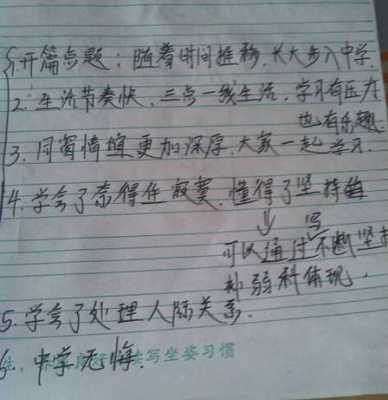 1.开篇点题：随着时间推移，长大步入中学.
2.生活节奏快，三点一线生活，学习有压力
也有乐趣.
3.同窗情谊更加深厚，大家一起学习.
4.学会了奈得住寂寞，懂得了坚持
写
可以通过不断坚持
补弱科体现.
5.学会了处理人际关系.
6.中学无悔.
写坐姿习惯